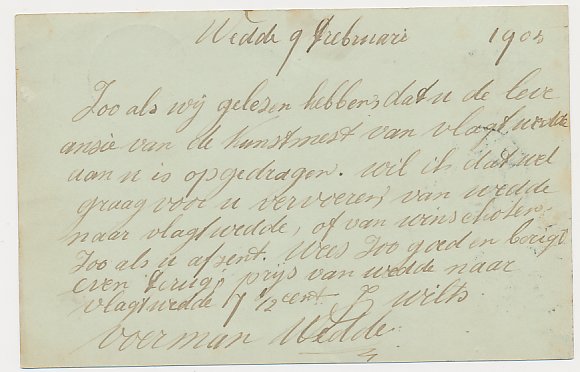 Wedde 9 Februari 1905
Zoo als wij gelesen hebben, dat u de leve
ansie van de kunstmest van vlagtwedde
aan u is opgedragen. wil ik dat wel
graag voor u vervoeren, van wedde
naar vlagtwedde, of van winschoten.
Zoo als u afsent. Wees Zoo goed en berigt
even terug, prijs van wedde naar
vlagtwedde 7 1/2 cent J wilts
voerman Wedde.